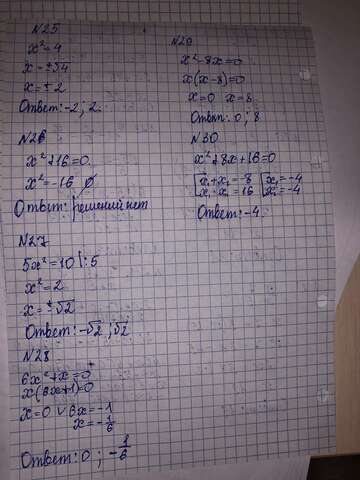 N25
x² = 4
x = ±√4
x = ±2
Ответ: -2; 2.
N26
x² + 16 = 0
x² = -16 ∅
Ответ: решений нет
N27
5x² = 10 |:5
x² = 2
x = ±√2
Ответ: -√2; √2
N28
6x² + x = 0
x(6x+1) = 0
x = 0 ∨ 6x = -1
x = -1/6
Ответ: 0; -1/6
N29
x² - 8x = 0
x(x-8) = 0
x = 0 x = 8
Ответ: 0; 8
N30
x² + 8x + 16 = 0
[x₁ + x₂ = -8 [x₁ = -4
x₁ · x₂ = 16 x₂ = -4
Ответ: -4